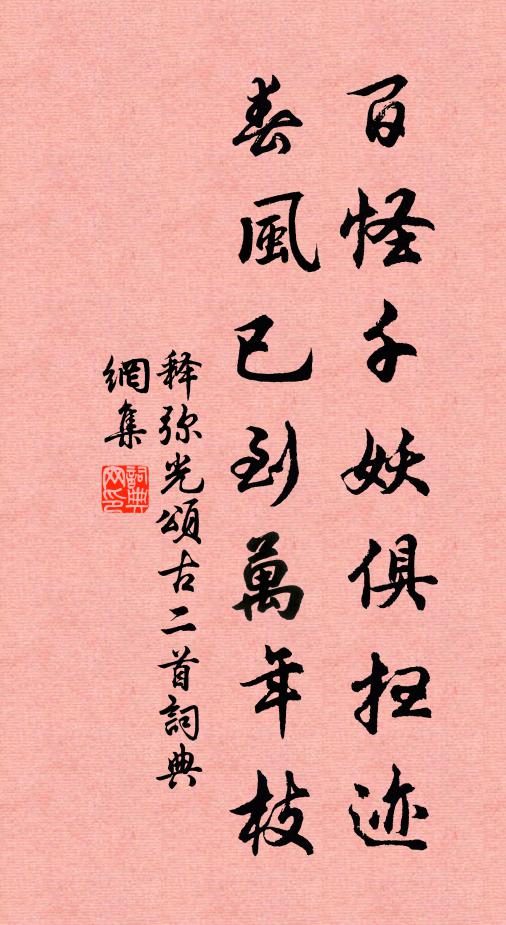 百怪千妖俱扫迹
春風已到萬年枝
释弥光頌古二首詞典
網集
詞典
网印